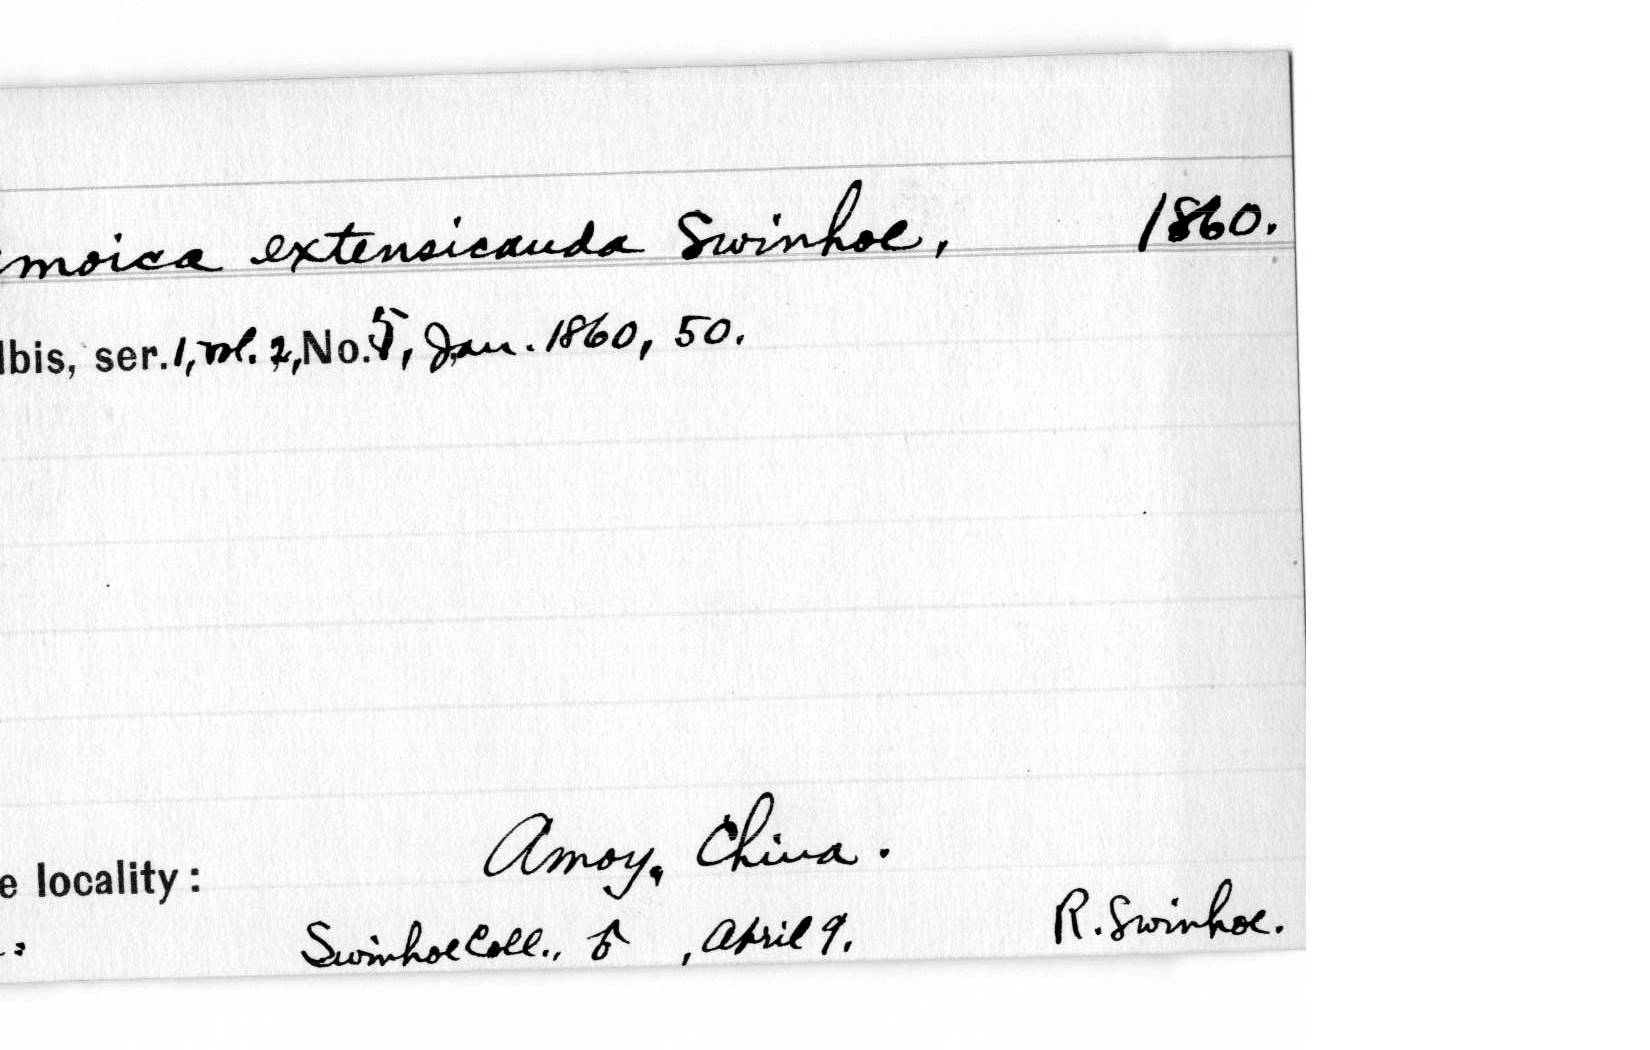 moica extensicauda Swinhoe, 1860.
Ibis, ser. 1, vol. 2, No. 5, Jan. 1860, 50.
e locality: Amoy, China.
: Swinhoe Coll., , April 9. R. Swinhoe.